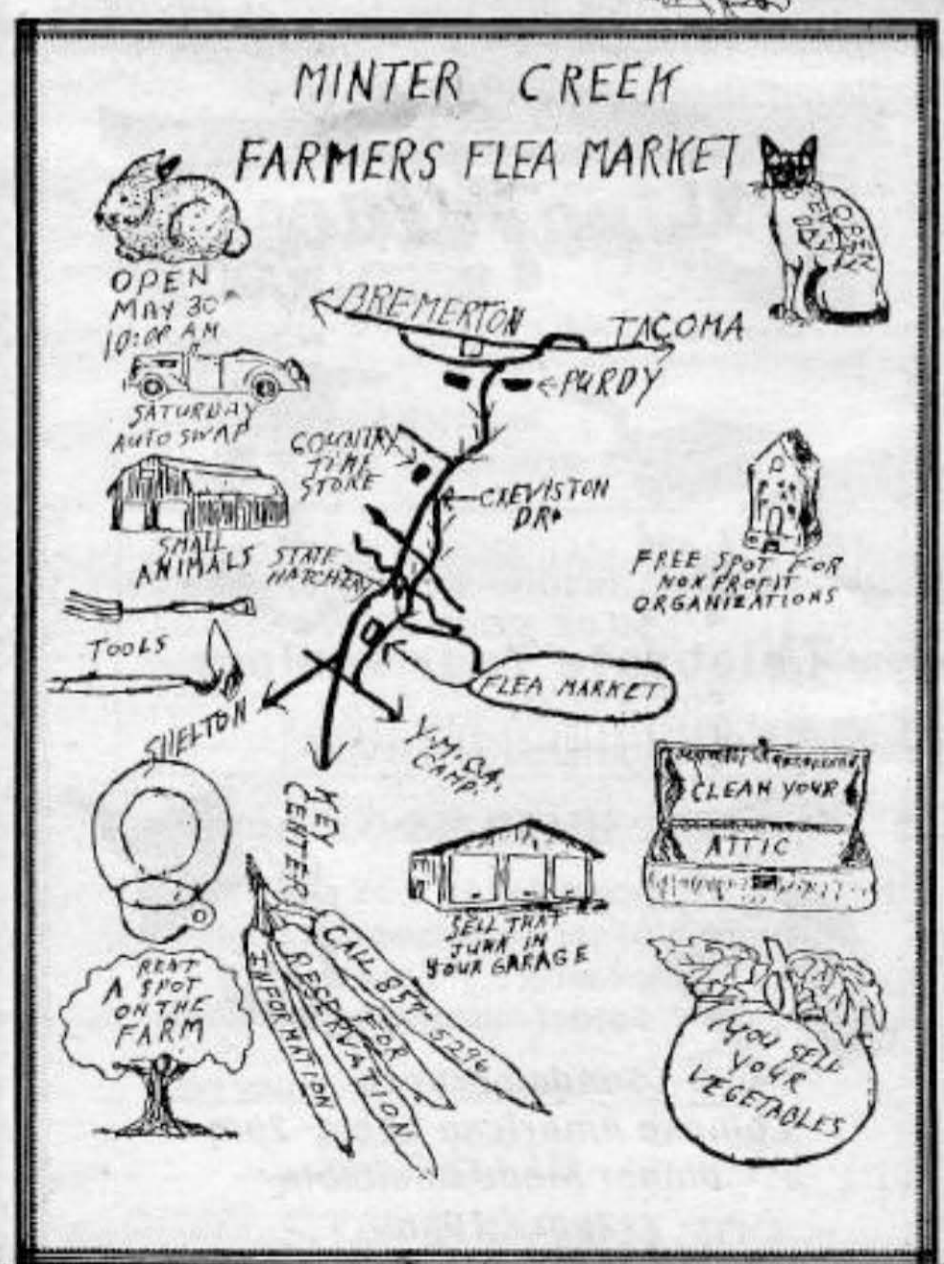 MINTER CREEK
FARMERS FLEA MARKET
OPEN
MAY 30
10:00 AM
SATURDAY
AUTO SWAP
SMALL
ANIMALS
TOOLS
BREMERTON
TACOMA
PURDY
COUNTRY
TIME
STORE
CREVISTON
DR
STATE
HATCHERY
FLEA MARKET
SHELTON
Y.M.C.A.
CAMP.
KEY
CENTER
OPEN
FREE SPOT FOR
NON PROFIT
ORGANIZATIONS
CLEAN YOUR
ATTIC
SELL THAT
JUNK IN
YOUR GARAGE
RENT
A SPOT
ON THE
FARM
INFORMATION
RESERVATION
FOR
CALL 857-5296
YOU SELL
YOUR
VEGETABLES